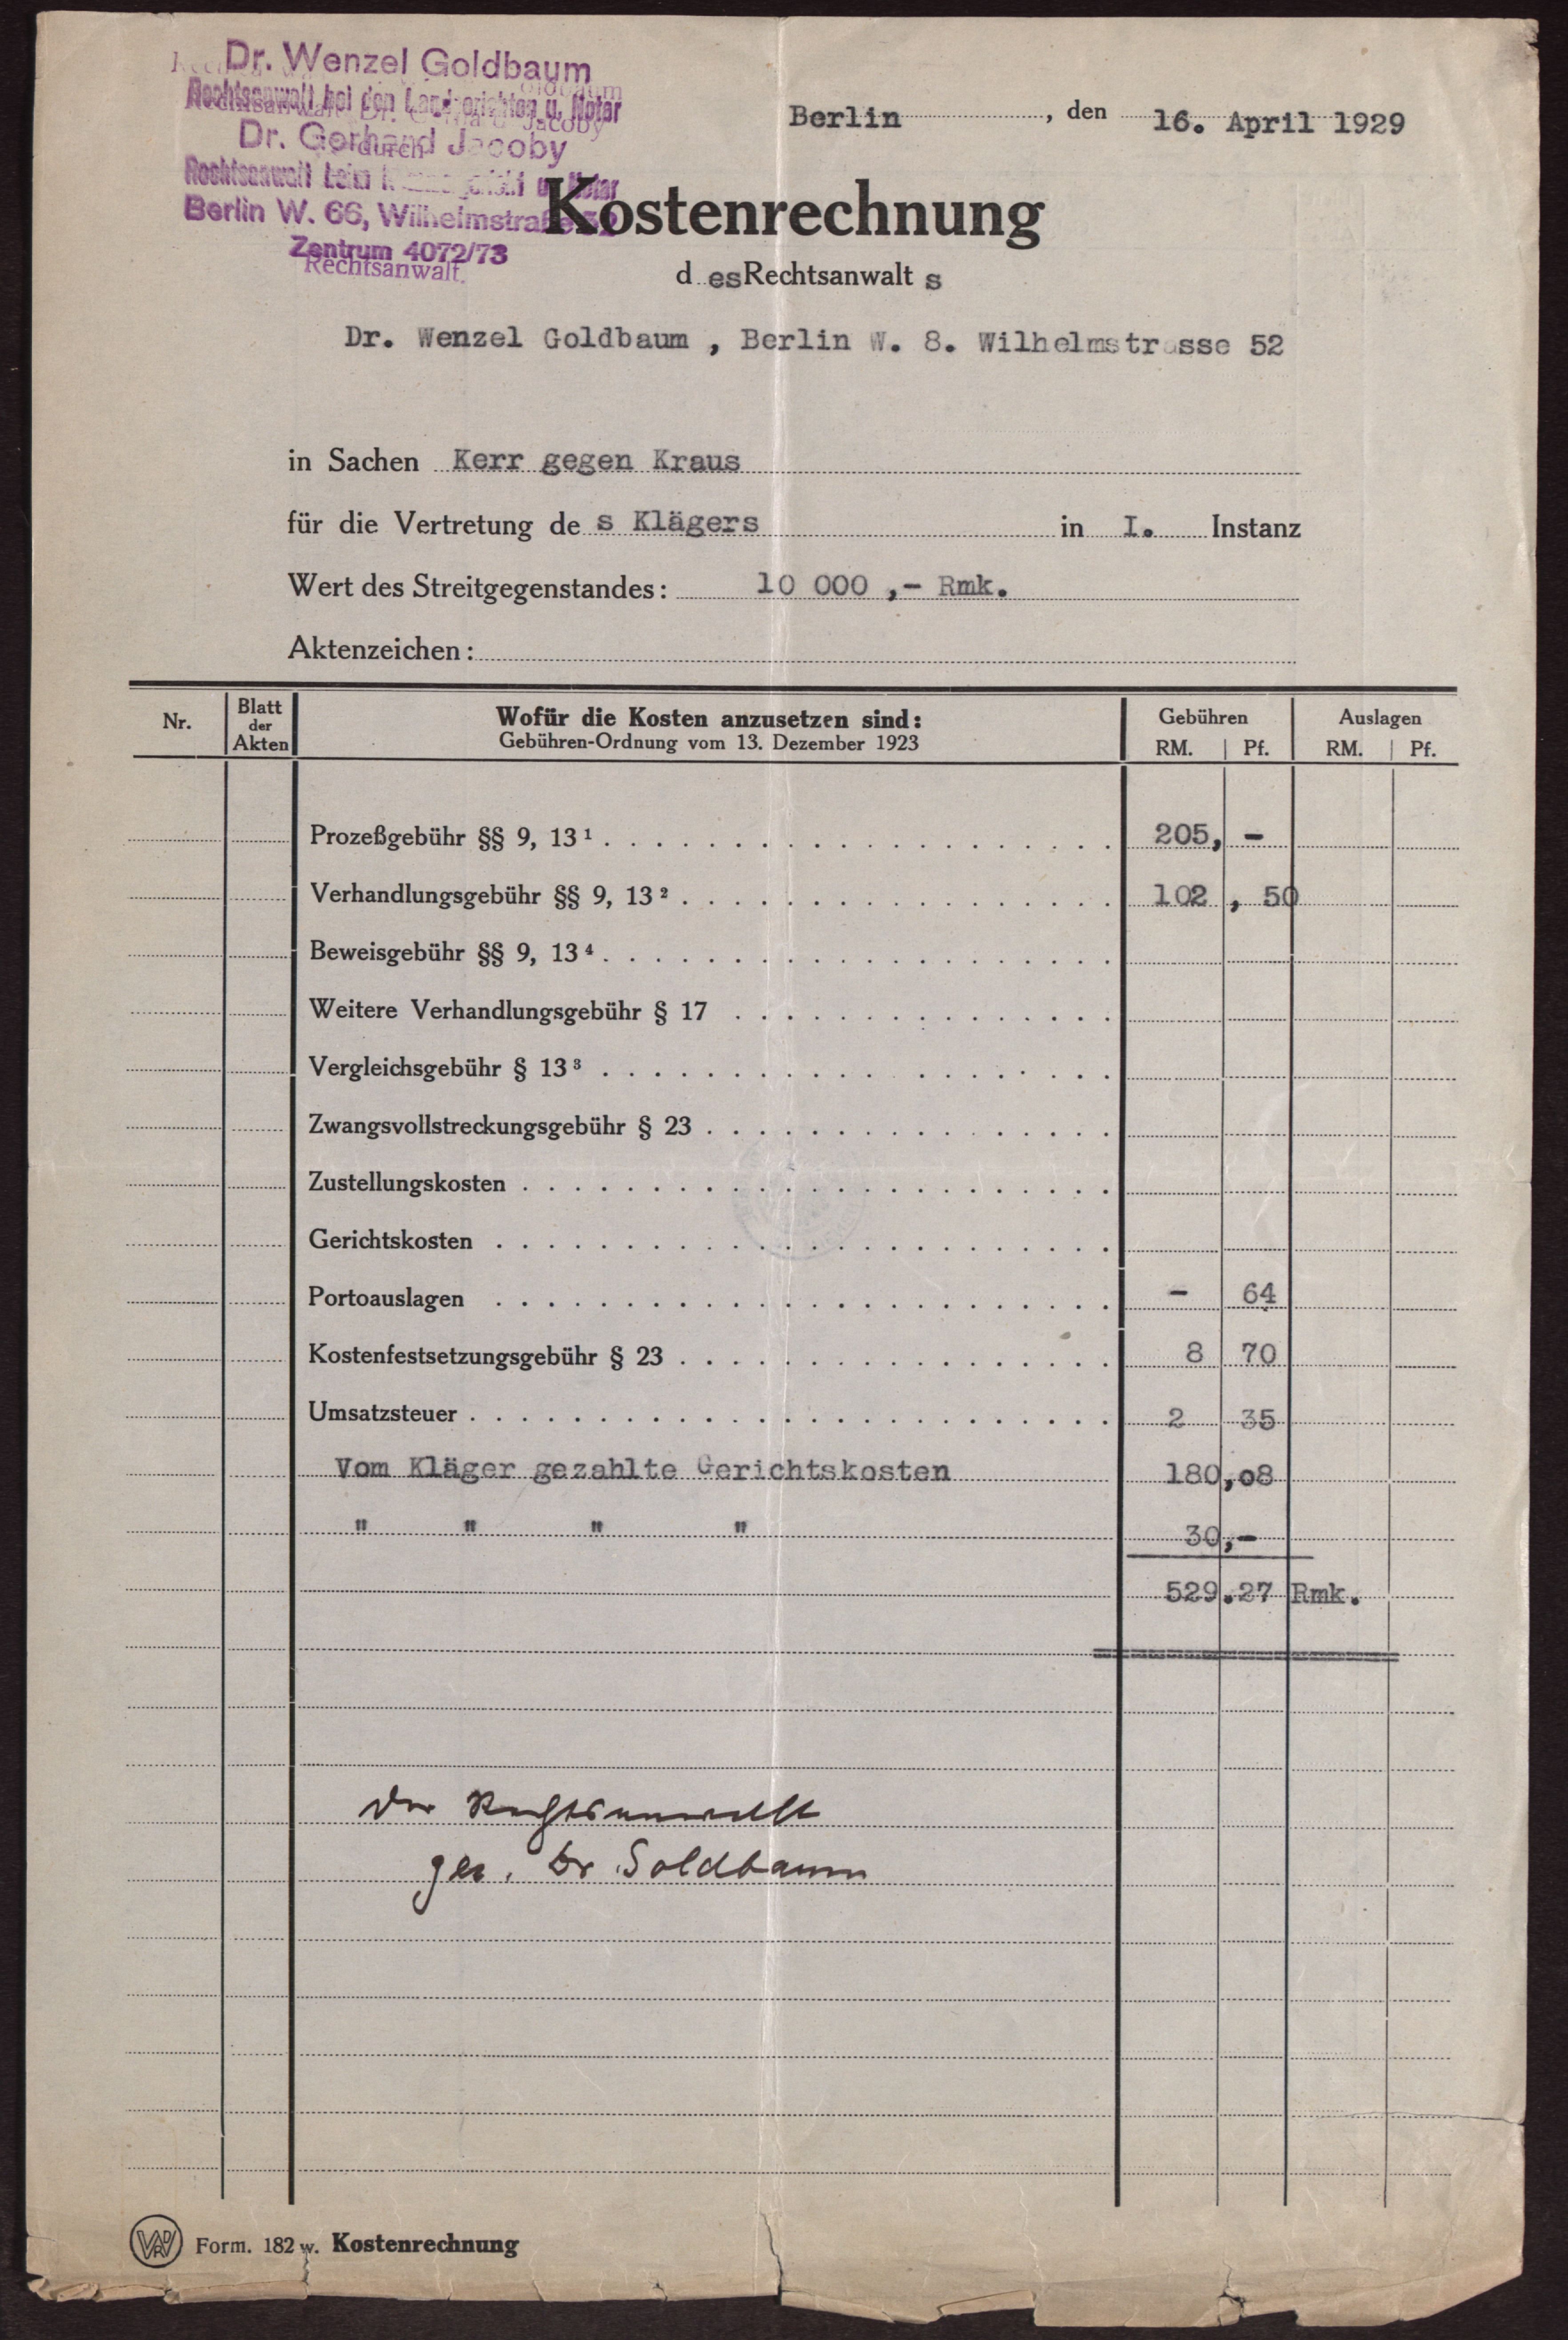 Dr. Wenzel Goldbaum
Rechtsanwalt bei den Landgerichten u. Notar
Dr. Gerhard Jacoby
durch
Rechtsanwalt u. Notar
Berlin W. 66, Wilhelmstraße 52
Zentrum 4072/73
Rechtsanwalt.
Berlin, den 16. April 1929
Kostenrechnung
d es Rechtsanwalt s
Dr. Wenzel Goldbaum , Berlin W. 8. Wilhelmstrasse 52
in Sachen Kerr gegen Kraus
für die Vertretung de s Klägers in I. Instanz
Wert des Streitgegenstandes: 10 000 ,- Rmk.
Aktenzeichen:
Nr. Blatt der Akten Wofür die Kosten anzusetzen sind: Gebühren Auslagen
Gebühren-Ordnung vom 13. Dezember 1923 RM. Pf. RM. Pf.
Prozeßgebühr §§ 9, 13¹ 205, -
Verhandlungsgebühr §§ 9, 13² 102 , 50
Beweisgebühr §§ 9, 13⁴
Weitere Verhandlungsgebühr § 17
Vergleichsgebühr § 13³
Zwangsvollstreckungsgebühr § 23
Zustellungskosten
Gerichtskosten
Portoauslagen - 64
Kostenfestsetzungsgebühr § 23 8 70
Umsatzsteuer 2 35
Vom Kläger gezahlte Gerichtskosten 180,08
" " " " 30,-
529.27 Rmk.
Der Rechtsanwalt
gez. Dr Goldbaum
Form. 182 w. Kostenrechnung